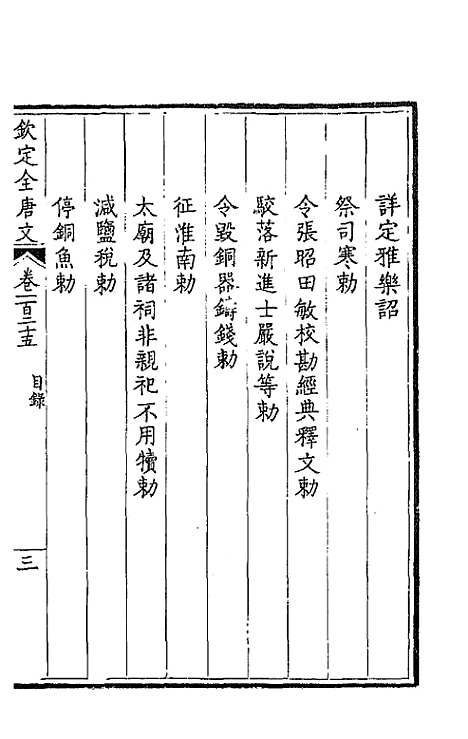 詳定雅樂詔
祭司寒勅
令張昭田敏校勘經典釋文勅
駮落新進士嚴說等勅
令毀銅器鑄錢勅
征淮南勅
太廟及諸祠非親祀不用犢勅
減鹽稅勅
停銅魚勅
欽定全唐文 卷一百二十五 目錄 三